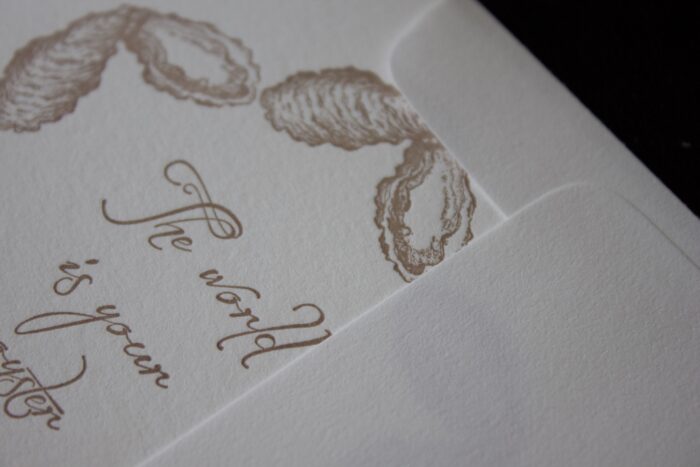 The world
is your
oyster